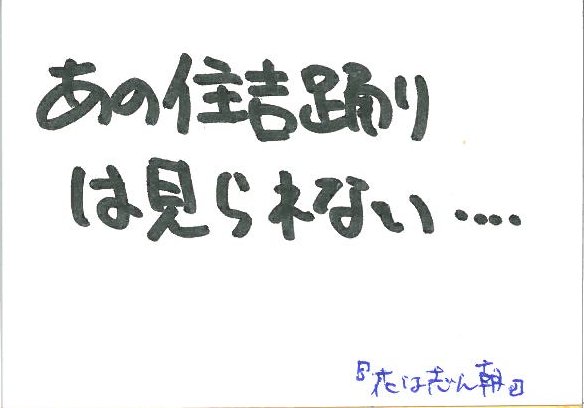 あの住吉踊り
は見られない・・・・
『花は志ん朝』